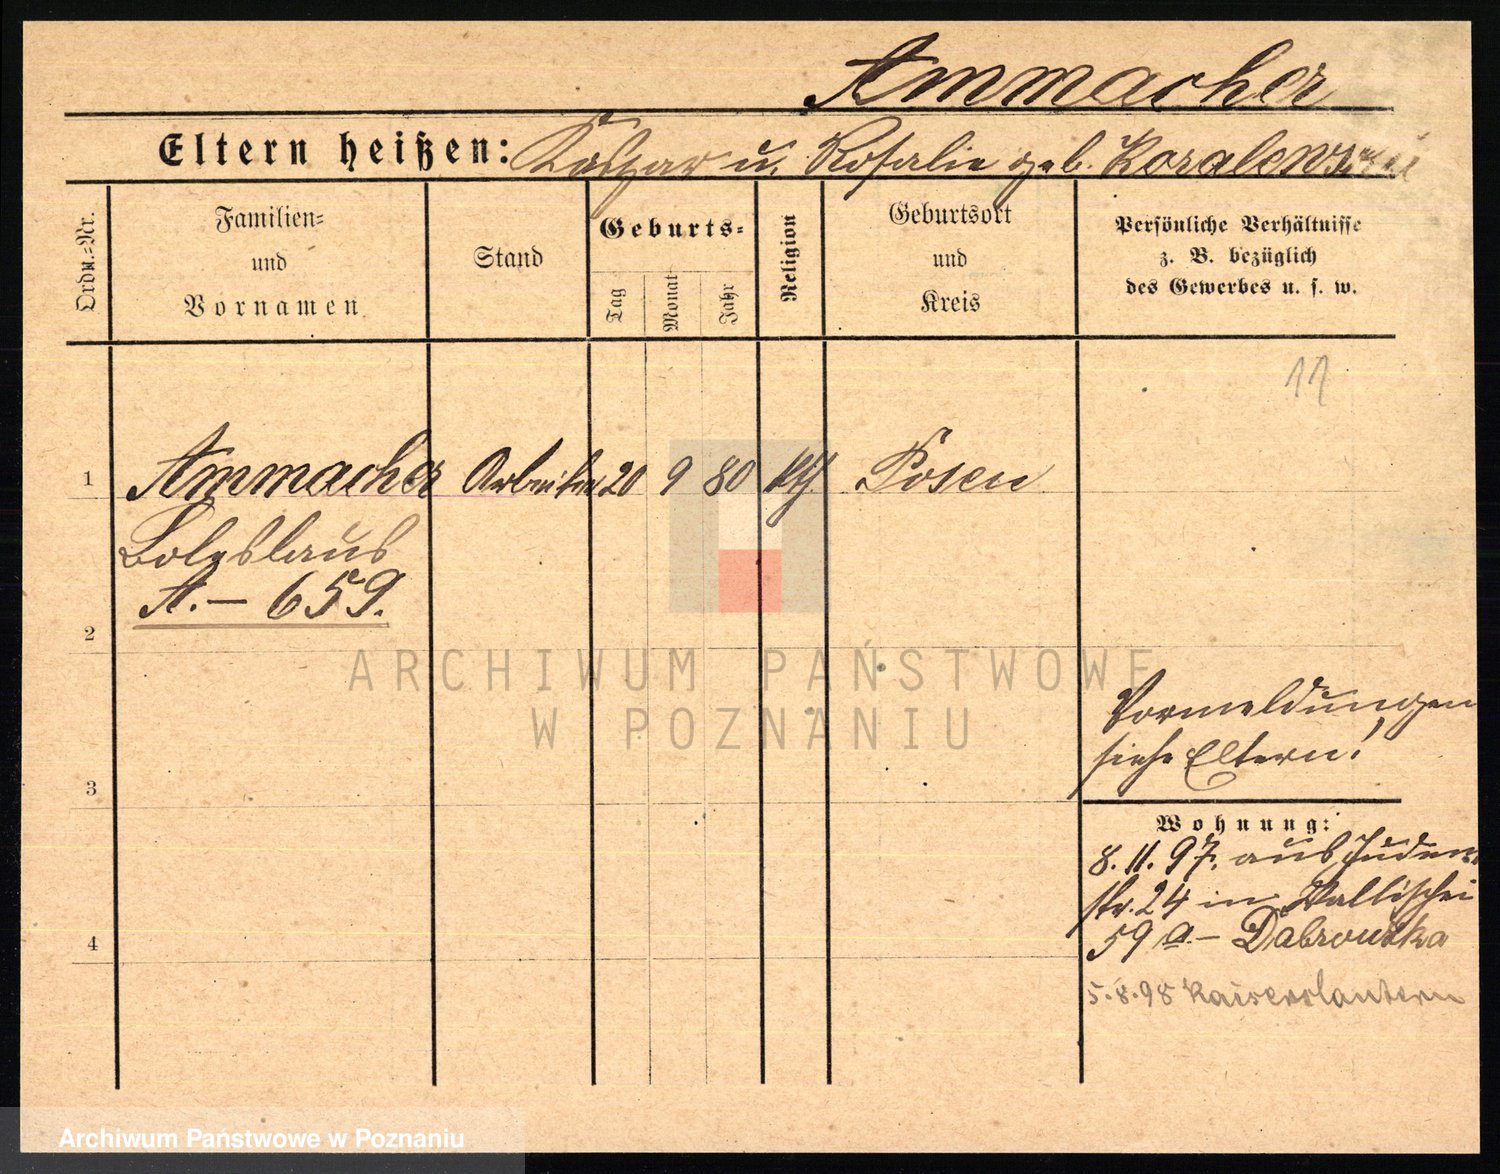 Ammacher
Eltern heißen: Kaspar u. Rosalie geb. Koralewski
Ordn.-Nr.
Familien-
und
Vornamen
Stand
Geburts-
Tag
Monat
Jahr
Religion
Geburtsort
und
Kreis
Persönliche Verhältnisse
z. B. bezüglich
des Gewerbes u. s. w.
11
1 Ammacher Arbeiter 20 9 80 kth. Posen
Boleslaus
A. — 659.
2
3
4
Vormeldungen
siehe Eltern!
Wohnung:
8. 11. 97. aus Juden
str. 24 in Wallischei
59 a. - Dabrowska
5.8.98 Kaiserslautern
ARCHIWUM PAŃSTWOWE
W POZNANIU
Archiwum Państwowe w Poznaniu